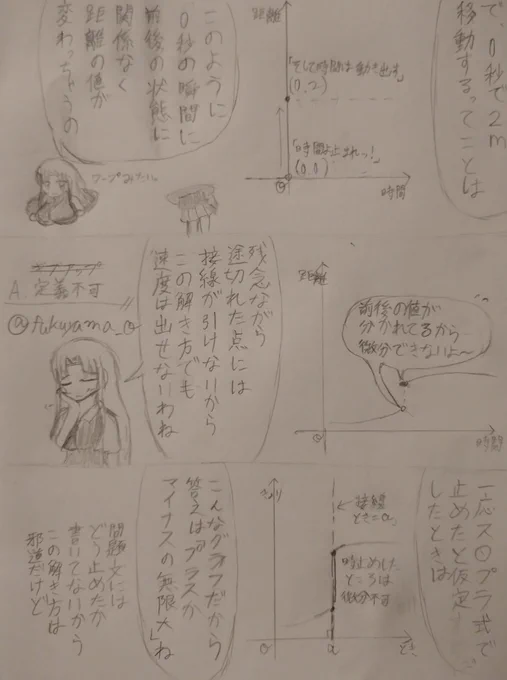 で、0秒で2m
移動するってことは
距離
「そして時間は動き出す」
(0,2)
「時間よ止まれっ!」
(0,0)
0
時間
このように
0秒の瞬間に
前後の状態に
関係なく
距離の値が
変わっちゃうの
ワープみたいに
距離
前後の値が
分かれてるから
微分できないよ〜
0
時間
残念ながら
途切れた点には
接線が引けないから
この解き方でも
速度は出せないわね
A. 定義不可
@fukuyama_0
一応スOプラ式で
止めたと仮定
したときは
きょり
接線
とき=a
時止めした
ところは
微分不可
0
a
とき
こんなグラフだから
答えは「プラスか
マイナスの無限大」ね
問題文には
どう止めたか
書いてないから
この解き方は
邪道だけど